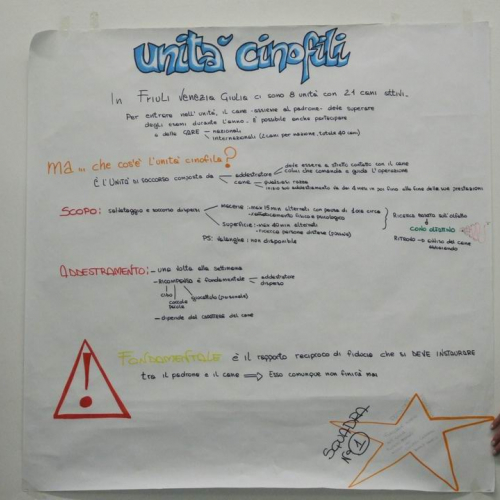 unità cinofili
In FRIULI VENEZIA GIULIA ci sono 8 unità con 21 cani attivi.
Per entrare nell'unità, il cane assieme al padrone deve superare
degli esami durante l'anno. È possibile anche partecipare
a delle GARE nazionali
internazionali (2 cani per nazione, totale 40 cani)
ma... che cos'è l'unità cinofila?
È l'UNITÀ DI SOCCORSO composta da addestratore deve essere a stretto contatto con il cane
colui che comanda e guida l'operazione
cane qualsiasi razza
inizia suo addestramento da dai 2 mesi in poi fino alla fine delle sue prestazioni
SCOPO: salvataggio e soccorso dispersi
macerie: max 15 min alternati con pausa di circa
- rafforzamento fisico e psicologico
Superficie: max 40 min alternati
- ricerca persone distese (piccola)
PS: valanghe: non disponibile
Ricerca basata sull'olfatto
è
CONO OLFATTIVO
RITORNO → abbaiando
ADDESTRAMENTO: - una volta alla settimana
- RICOMPENSA è fondamentale addestratore
disperso
cibo
giocattolo (personale)
- dipende dal CARATTERE del cane
FONDAMENTALE è il rapporto reciproco di fiducia che si DEVE INSTAURARE
tra il padrone e il cane ⇒ Esso comunque non finirà mai
!
SQUADRA
N° 1